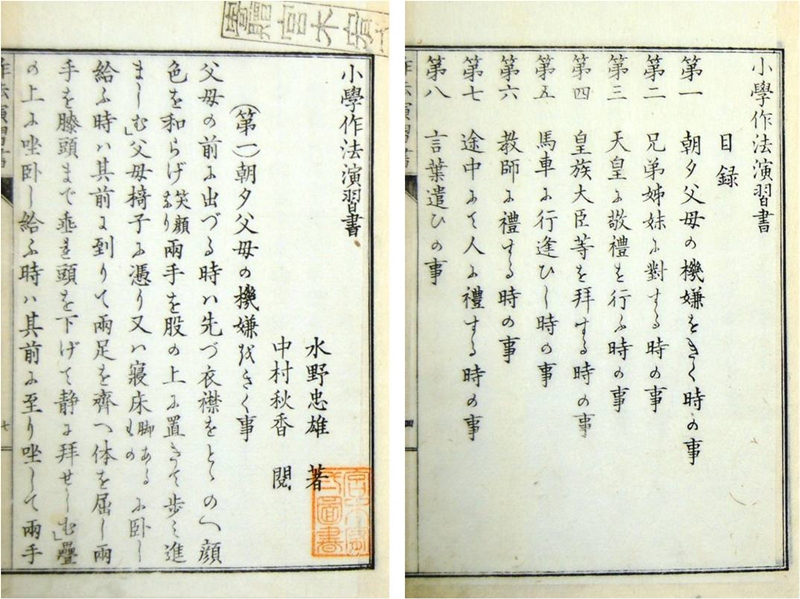 小學作法演習書
目録
第一 朝夕父母の機嫌をきく時の事
第二 兄弟姊妹に對する時の事
第三 天皇に敬禮を行ふ時の事
第四 皇族大臣等を拜する時の事
第五 馬車に行逢ひし時の事
第六 教師に禮する時の事
第七 途中にて人に禮する時の事
第八 言葉遣ひの事
小學作法演習書
水野忠雄 著
中村秋香 閲
(第一)朝夕父母の機嫌をきく事
父母の前に出づる時ハ先づ衣襟をとゝのへ顔
色を和らげ笑顔兩手を股の上に置きて歩ミ進
ましむ」父母椅子に憑り又ハ寢床脚あるものに卧し
給ふ時ハ其前に到りて兩足を齊へ体を屈し兩
手を膝頭まで垂を頭を下げて静に拜せしむ」疊
の上に坐卧し給ふ時ハ其前に至り坐して兩手